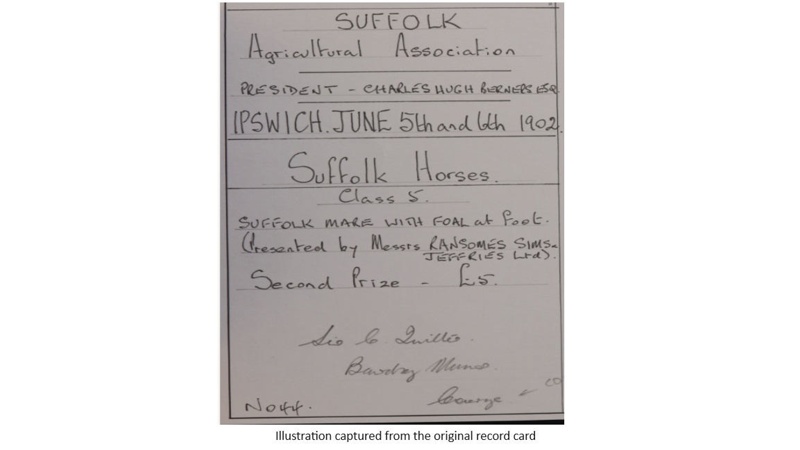 SUFFOLK
Agricultural Association
PRESIDENT - CHARLES HUGH BERNERS ESQ
IPSWICH. JUNE 5th and 6th 1902.
Suffolk Horses.
Class 5.
SUFFOLK MARE WITH FOAL at Foot.
(Presented by Messrs RANSOMES SIMS &
JEFFERIES Ltd).
Second Prize - £5.
No 44.
Illustration captured from the original record card